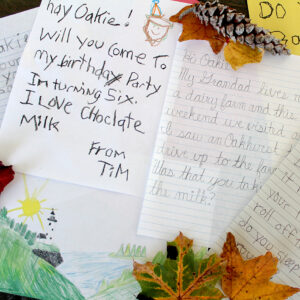 hay Oakie!
Will you come To
my birthday Party
Im turning Six.
I LOVE CHOCLATE
MiLK
FROM
TiM
Oakie
My Grandad lives
a dairy farm and this
weekend we visited
I saw an Oakhurst
drive up to the far
Was that you tak
the milk?
DO
your
roll off
do you sleep